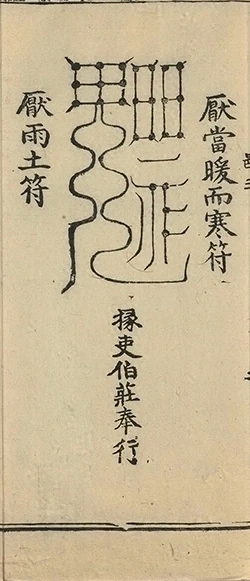 厭當暖而寒符
掾吏伯莊奉行
厭雨土符